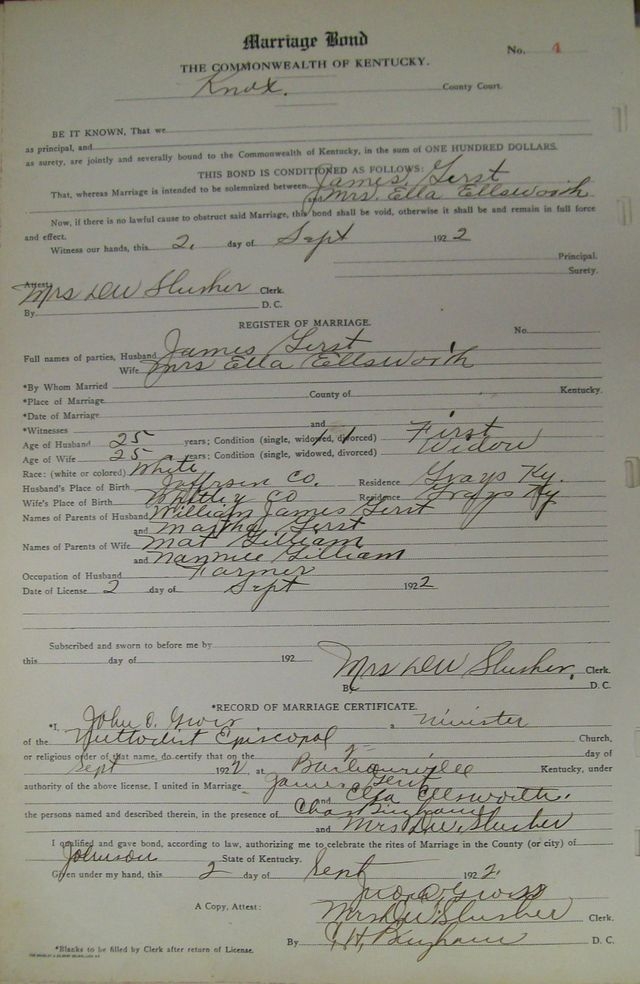 Marriage Bond
No. 4
THE COMMONWEALTH OF KENTUCKY.
Knox. County Court.
BE IT KNOWN, That we
as principal, and
as surety, are jointly and severally bound to the Commonwealth of Kentucky, in the sum of ONE HUNDRED DOLLARS.
THIS BOND IS CONDITIONED AS FOLLOWS:
That, whereas Marriage is intended to be solemnized between James Gerst
and Mrs. Ella Ellsworth
Now, if there is no lawful cause to obstruct said Marriage, this bond shall be void, otherwise it shall be and remain in full force
and effect.
Witness our hands, this 2, day of Sept 192 2
Principal.
Surety.
Attest:
Mrs DW Slusher Clerk.
By D. C.
REGISTER OF MARRIAGE.
No.
Full names of parties, Husband James Gerst
Wife Mrs Ella Ellsworth
*By Whom Married
*Place of Marriage County of Kentucky.
*Date of Marriage
*Witnesses and
Age of Husband 25 years; Condition (single, widowed, divorced) First
Age of Wife 25 years; Condition (single, widowed, divorced) Widow
Race: (white or colored) White
Husband's Place of Birth Jefferson Co. Residence Grays Ky.
Wife's Place of Birth Whitley Co Residence Grays Ky
Names of Parents of Husband William James Gerst
and Martha Gerst
Names of Parents of Wife Mat Gilliam
and Nannie Gilliam
Occupation of Husband Farmer
Date of License 2 day of Sept 192 2
Subscribed and sworn to before me by
this day of 192
Mrs DW Slusher, Clerk.
By D. C.
*RECORD OF MARRIAGE CERTIFICATE.
*I, John O. a Minister
of the Methodist Episcopal Church,
or religious order of that name, do certify that on the 2 day of
Sept 192 2, at Barbourville Kentucky, under
authority of the above license, I united in Marriage James Gerst
and Ella Ellsworth.
the persons named and described therein, in the presence of Chas Bingham
and Mrs DW Slusher
I qualified and gave bond, according to law, authorizing me to celebrate the rites of Marriage in the County (or city) of
Johnson State of Kentucky.
Given under my hand, this 2 day of Sept 192 2.
A Copy, Attest:
Mrs DW Slusher Clerk.
By Bingham D. C.
*Blanks to be filled by Clerk after return of License.